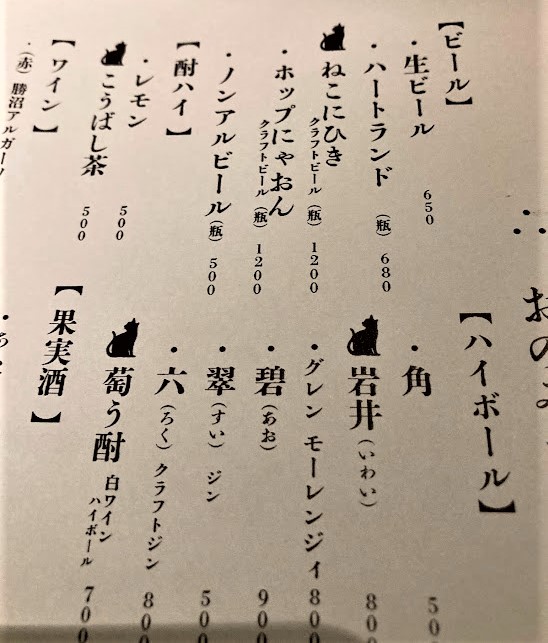 おの
【ビール】
・生ビール 650
・ハートランド (瓶) 680
ねこにひき クラフトビール (瓶) 1200
・ホップにゃおん クラフトビール (瓶) 1200
・ノンアルビール (瓶) 500
【酎ハイ】
・レモン 500
こうばし茶 500
【ワイン】
・(赤) 勝沼アルガーノ
【ハイボール】
・角 50
岩井 (いわい) 80
・グレンモーレンジィ 800
・碧 (あお) 900
・翠 (すい) ジン 500
・六 (ろく) クラフトジン 800
萄う酎 白ワインハイボール 700
【果実酒】